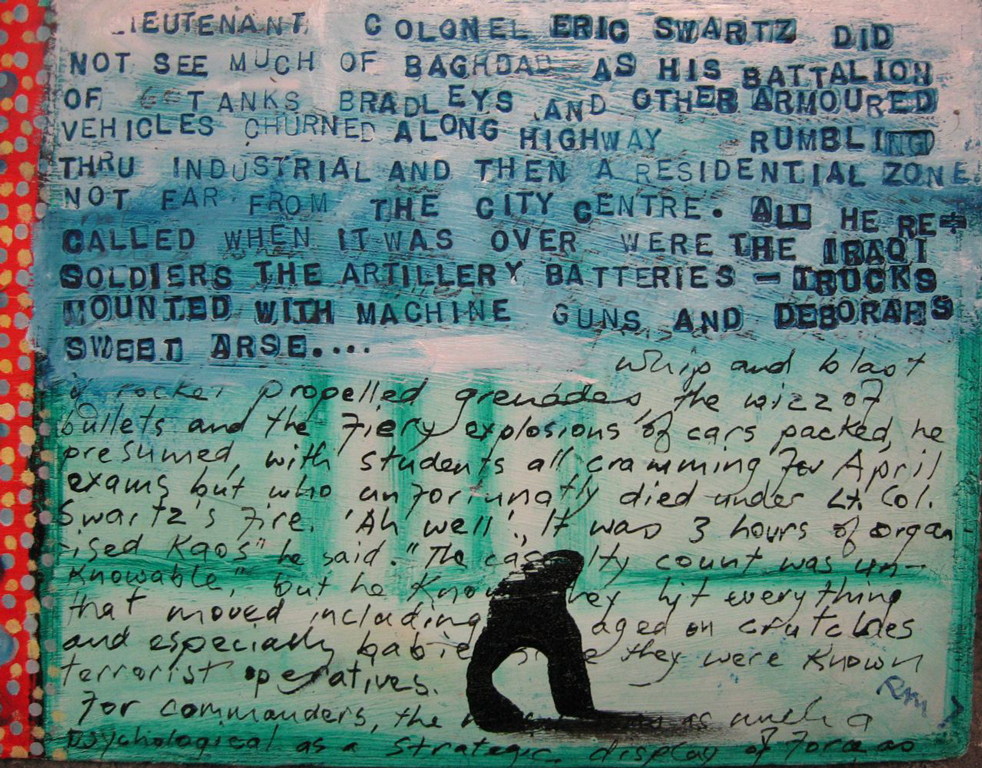 LIEUTENANT COLONEL ERIC SWARTZ DID
NOT SEE MUCH OF BAGHDAD AS HIS BATTALION
OF TANKS BRADLEYS AND OTHER ARMOURED
VEHICLES CHURNED ALONG HIGHWAY RUMBLING
THRU INDUSTRIAL AND THEN A RESIDENTIAL ZONE
NOT FAR FROM THE CITY CENTRE. ALL HE RE-
CALLED WHEN IT WAS OVER WERE THE IRAQI
SOLDIERS THE ARTILLERY BATTERIES – TRUCKS
MOUNTED WITH MACHINE GUNS AND DEBORAHS
SWEET ARSE....
Whip and blast
of rocket propelled grenades, the wizz of
bullets and the fiery explosions of cars packed, he
presumed, with students all cramming for April
exams but who unfortunatly died under Lt. Col.
Swartz's fire. 'Ah well', It was 3 hours of organ
ised Kaos" he said. "The lty count was un-
knowable," but he Know hey hit everything
that moved including aged on crutches
and especially babie they were Known
terrorist operatives.
For commanders, the as much a
psychological as a strategic display of force as
Rm